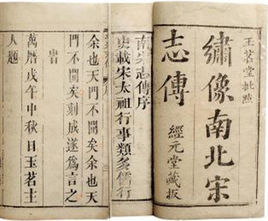 玉茗堂批點
繡像南北宋
志傳
經元堂藏板
南宋志傳序
史載宋太祖行事類多儒行
余也天門不閒矣余
門不閒矣刻成遂爲言之
皆
萬曆戊午中秋日玉茗主
人題